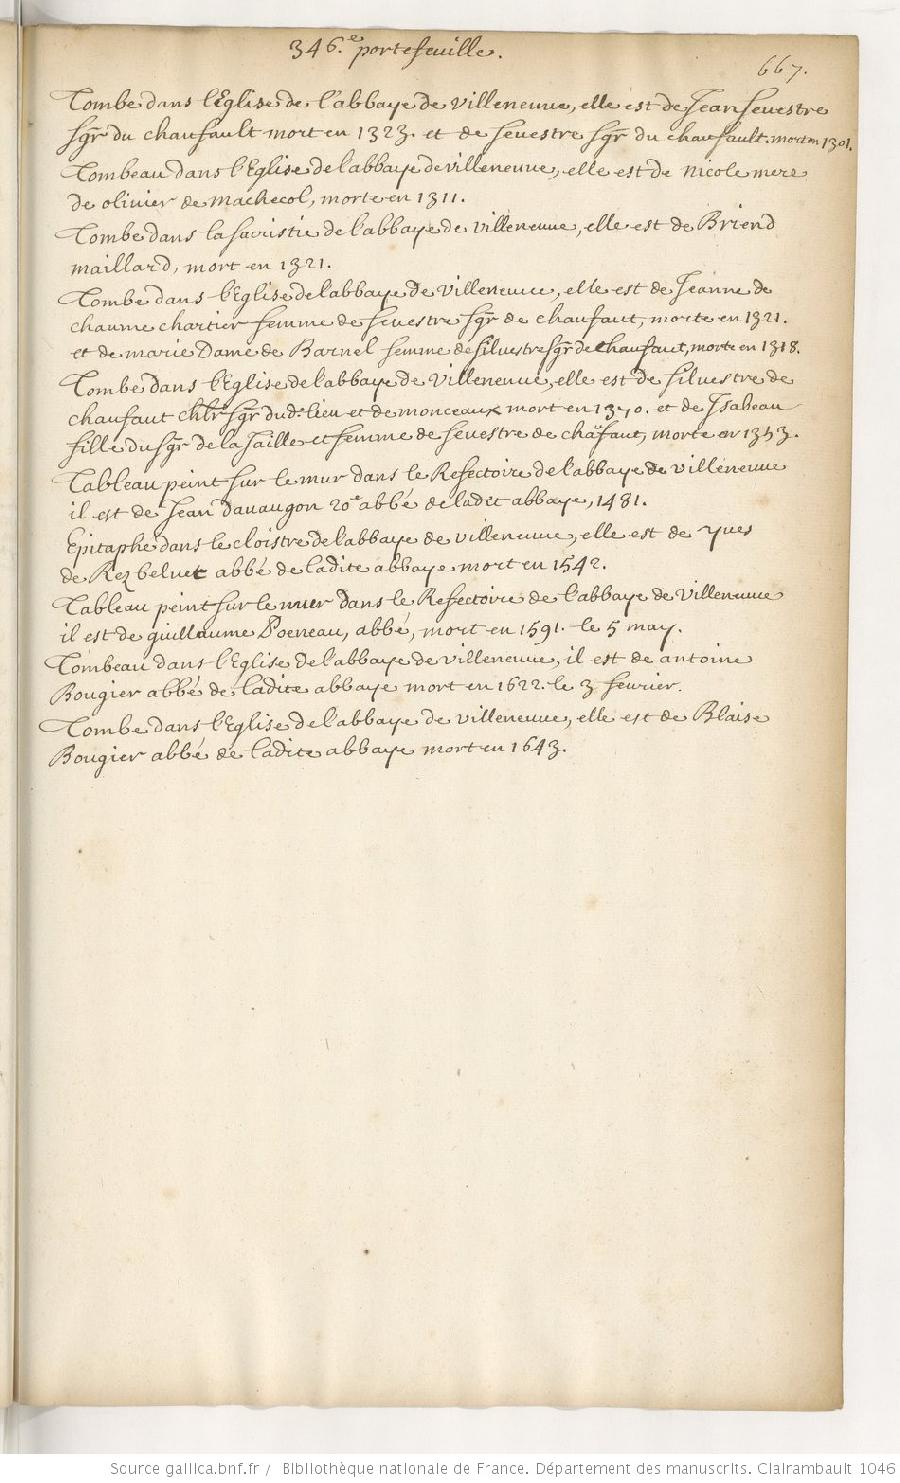 346.e portefeuille.
667.
Tombe dans l'Eglise de l'abbaye de villeneuve, elle est de Jean sevestre
sgr du chaufault mort en 1323. et de sevestre sgr du chaufault. mort en 1301.
Tombeau dans l'Eglise de l'abbaye de villeneuve, elle est de nicole mere
de olivier de machecol, morte en 1311.
Tombe dans la sacristie de l'abbaye de villeneuve, elle est de Briend
maillard, mort en 1321.
Tombe dans l'Eglise de l'abbaye de villeneuve, elle est de Jeanne de
chaume chartier femme de sevestre sgr de chaufaut, morte en 1321.
et de marie Dame de Barnel femme de silvestre sgr de Chaufaut, morte en 1318.
Tombe dans l'Eglise de l'abbaye de villeneuve, elle est de silvestre de
chaufaut chlr sgr dud. lieu et de monceaux mort en 1370. et de Isabeau
fille du sgr de la Jaille et femme de sevestre de chafaut, morte en 1353.
Tableau peint sur le mur dans le Refectoire de l'abbaye de villeneuve
il est de Jean davaugon 20e abbé de ladit abbaye, 1481.
Epitaphe dans le cloistre de l'abbaye de villeneuve, elle est de yves
de abbé de ladite abbaye mort en 1542.
Tableau peint sur le muer dans le Refectoire de l'abbaye de villeneuve
il est de guillaume Poeneau, abbé, mort en 1591. le 5 may.
Tombeau dans l'Eglise de l'abbaye de villeneuve, il est de antoine
Bougier abbé de ladite abbaye mort en 1622. le 3 fevrier.
Tombe dans l'Eglise de l'abbaye de villeneuve, elle est de Blaise
Bougier abbé de ladite abbaye mort en 1643.
Source gallica.bnf.fr / Bibliothèque nationale de France. Département des manuscrits. Clairambault 1046